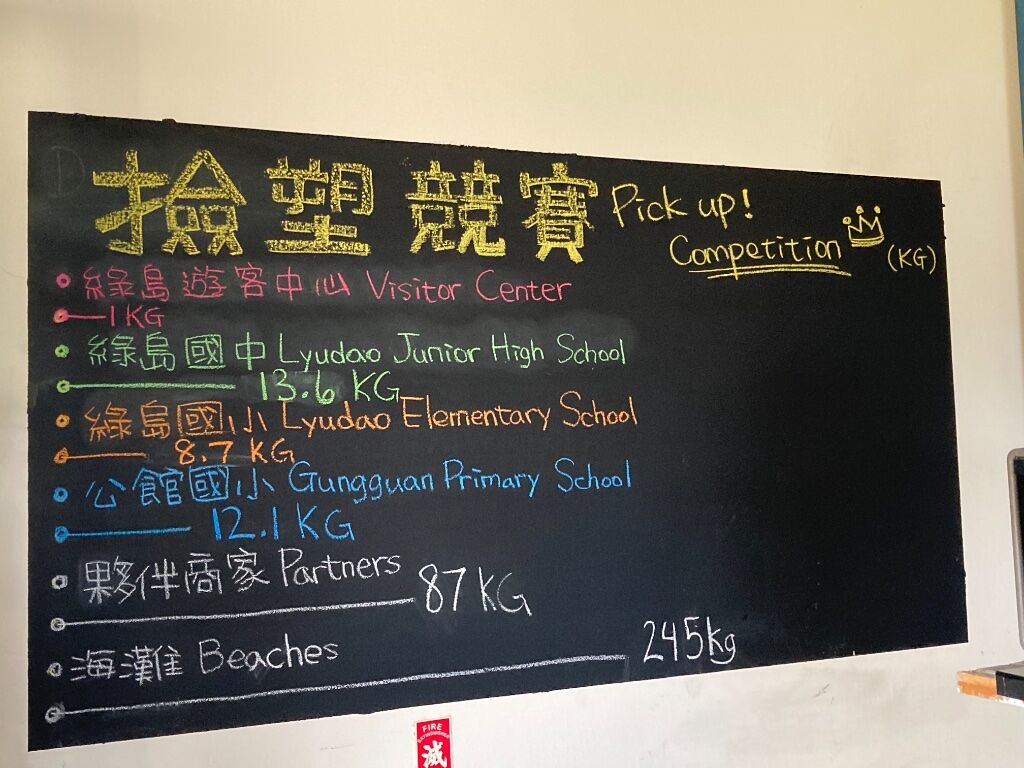 撿塑競賽 Pick up!
Competition (KG)
綠島遊客中心 Visitor Center
1KG
綠島國中 Lyudao Junior High School
13.6 KG
綠島國小 Lyudao Elementary School
8.7 KG
公館國小 Gungguan Primary School
12.1 KG
夥伴商家 Partners
87 KG
海灘 Beaches
245kg
FIRE
EXTINGUISHER
滅